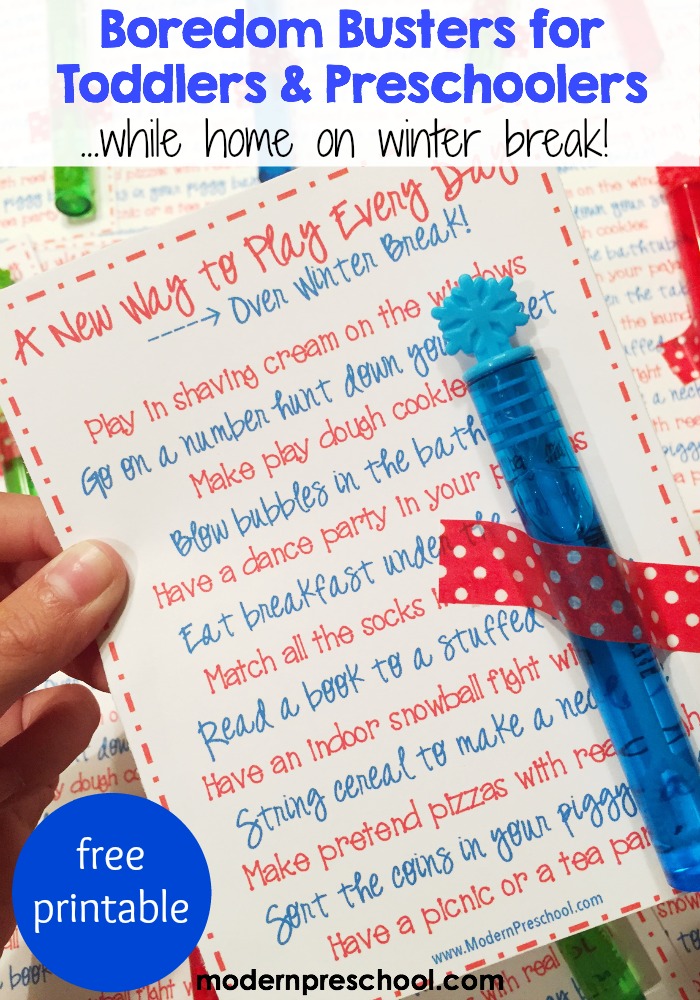 Boredom Busters for
Toddlers & Preschoolers
...while home on winter break!
A New Way to Play Every Day
Over Winter Break!
Play in shaving cream on the windows
Go on a number hunt down your
Make play dough cookie
Blow bubbles in the bath
Have a dance party in your
Eat breakfast under the
Match all the socks
Read a book to a stuffed
Have an indoor snowball fight
String cereal to make a
Make pretend pizzas with
Sort the coins in your piggy
Have a picnic or a tea
www.ModernPreschool.com
free
printable
modernpreschool.com